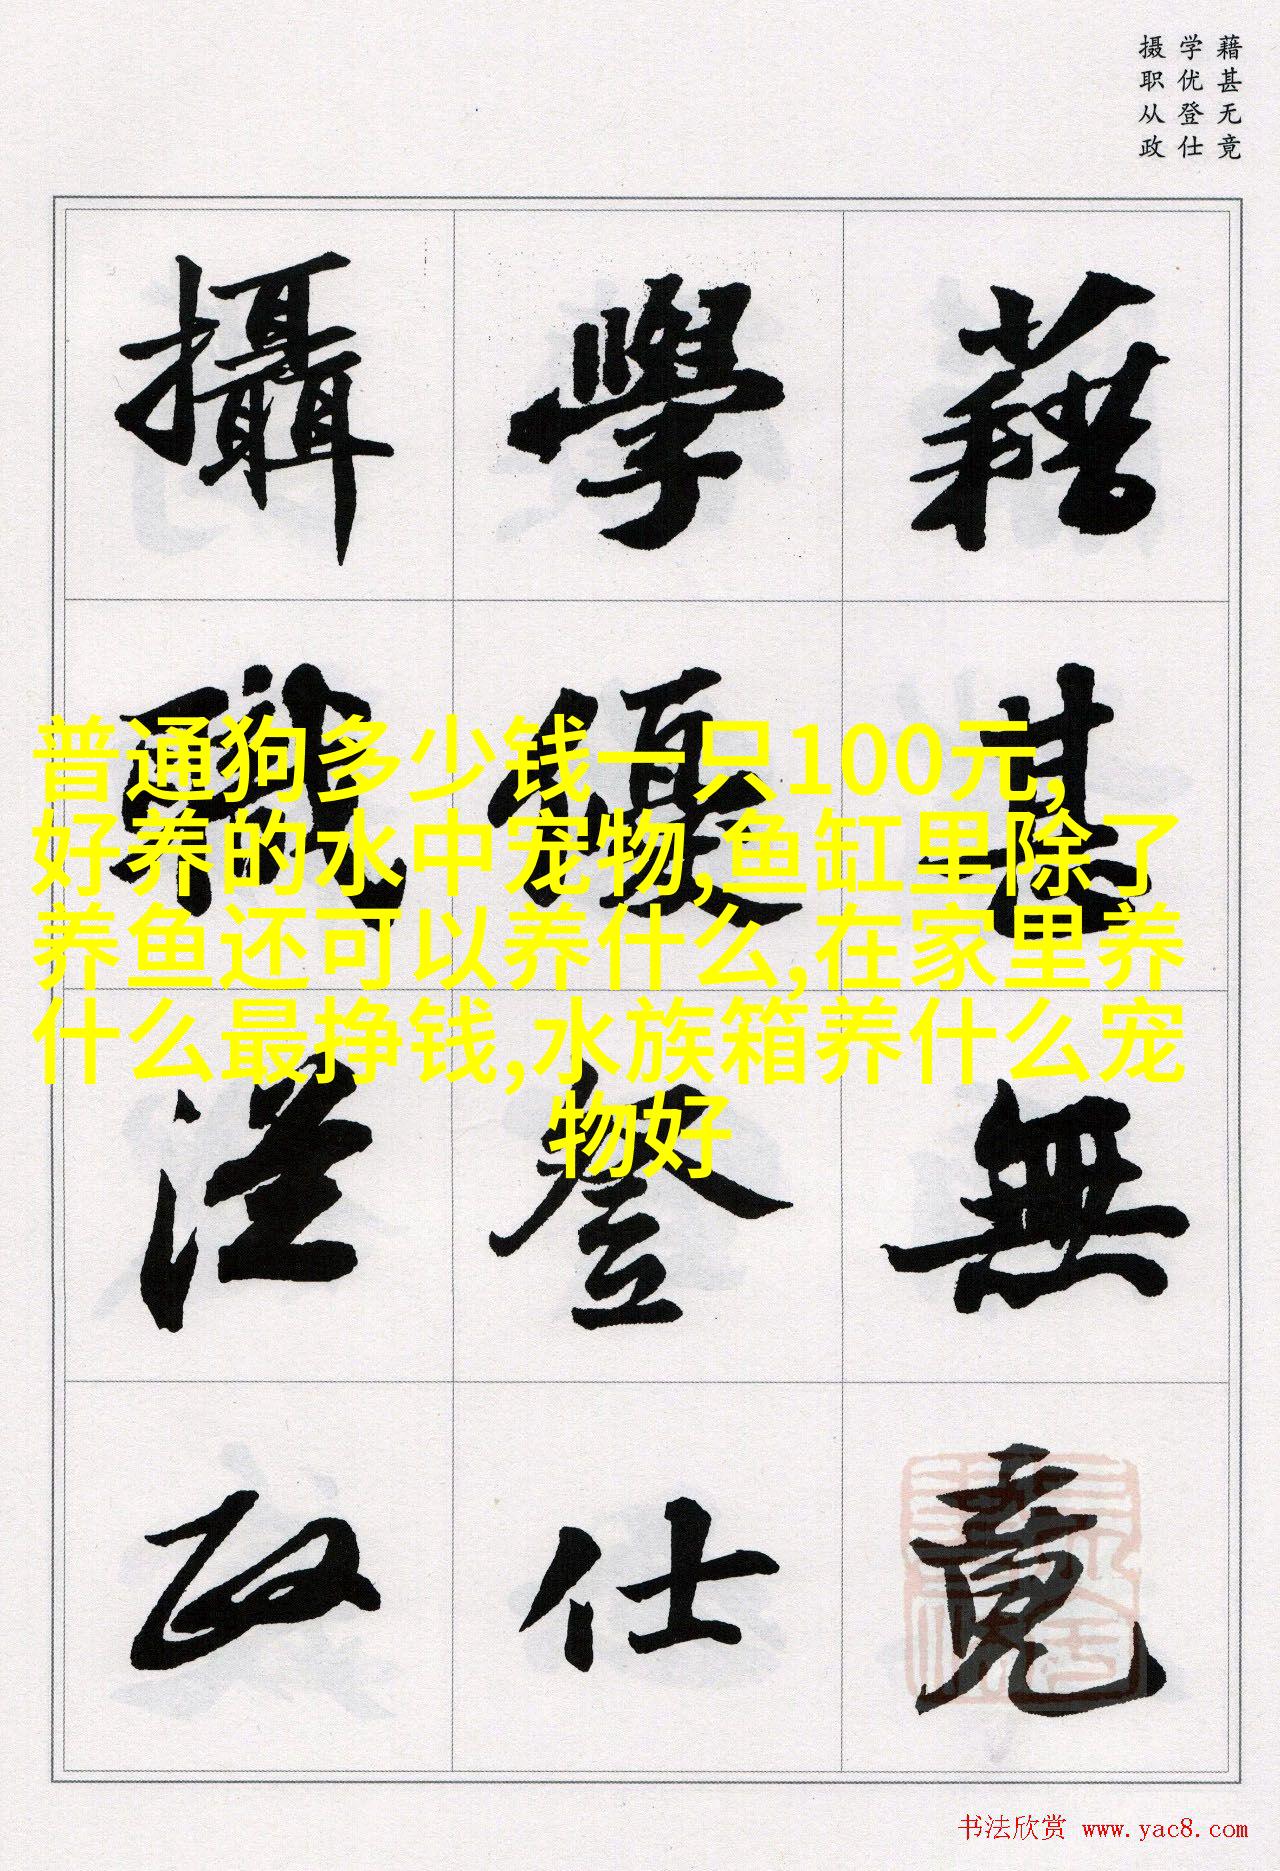 藉甚无竟
学优登仕
摄职从政
藉甚無竟
學優登仕
攝職從政
普通狗多少钱一只100元,
好养的水中宠物,鱼缸里除了
养鱼还可以养什么,在家里养
什么最挣钱,水族箱养什么宠
物好
书法欣赏 www.yac8.com